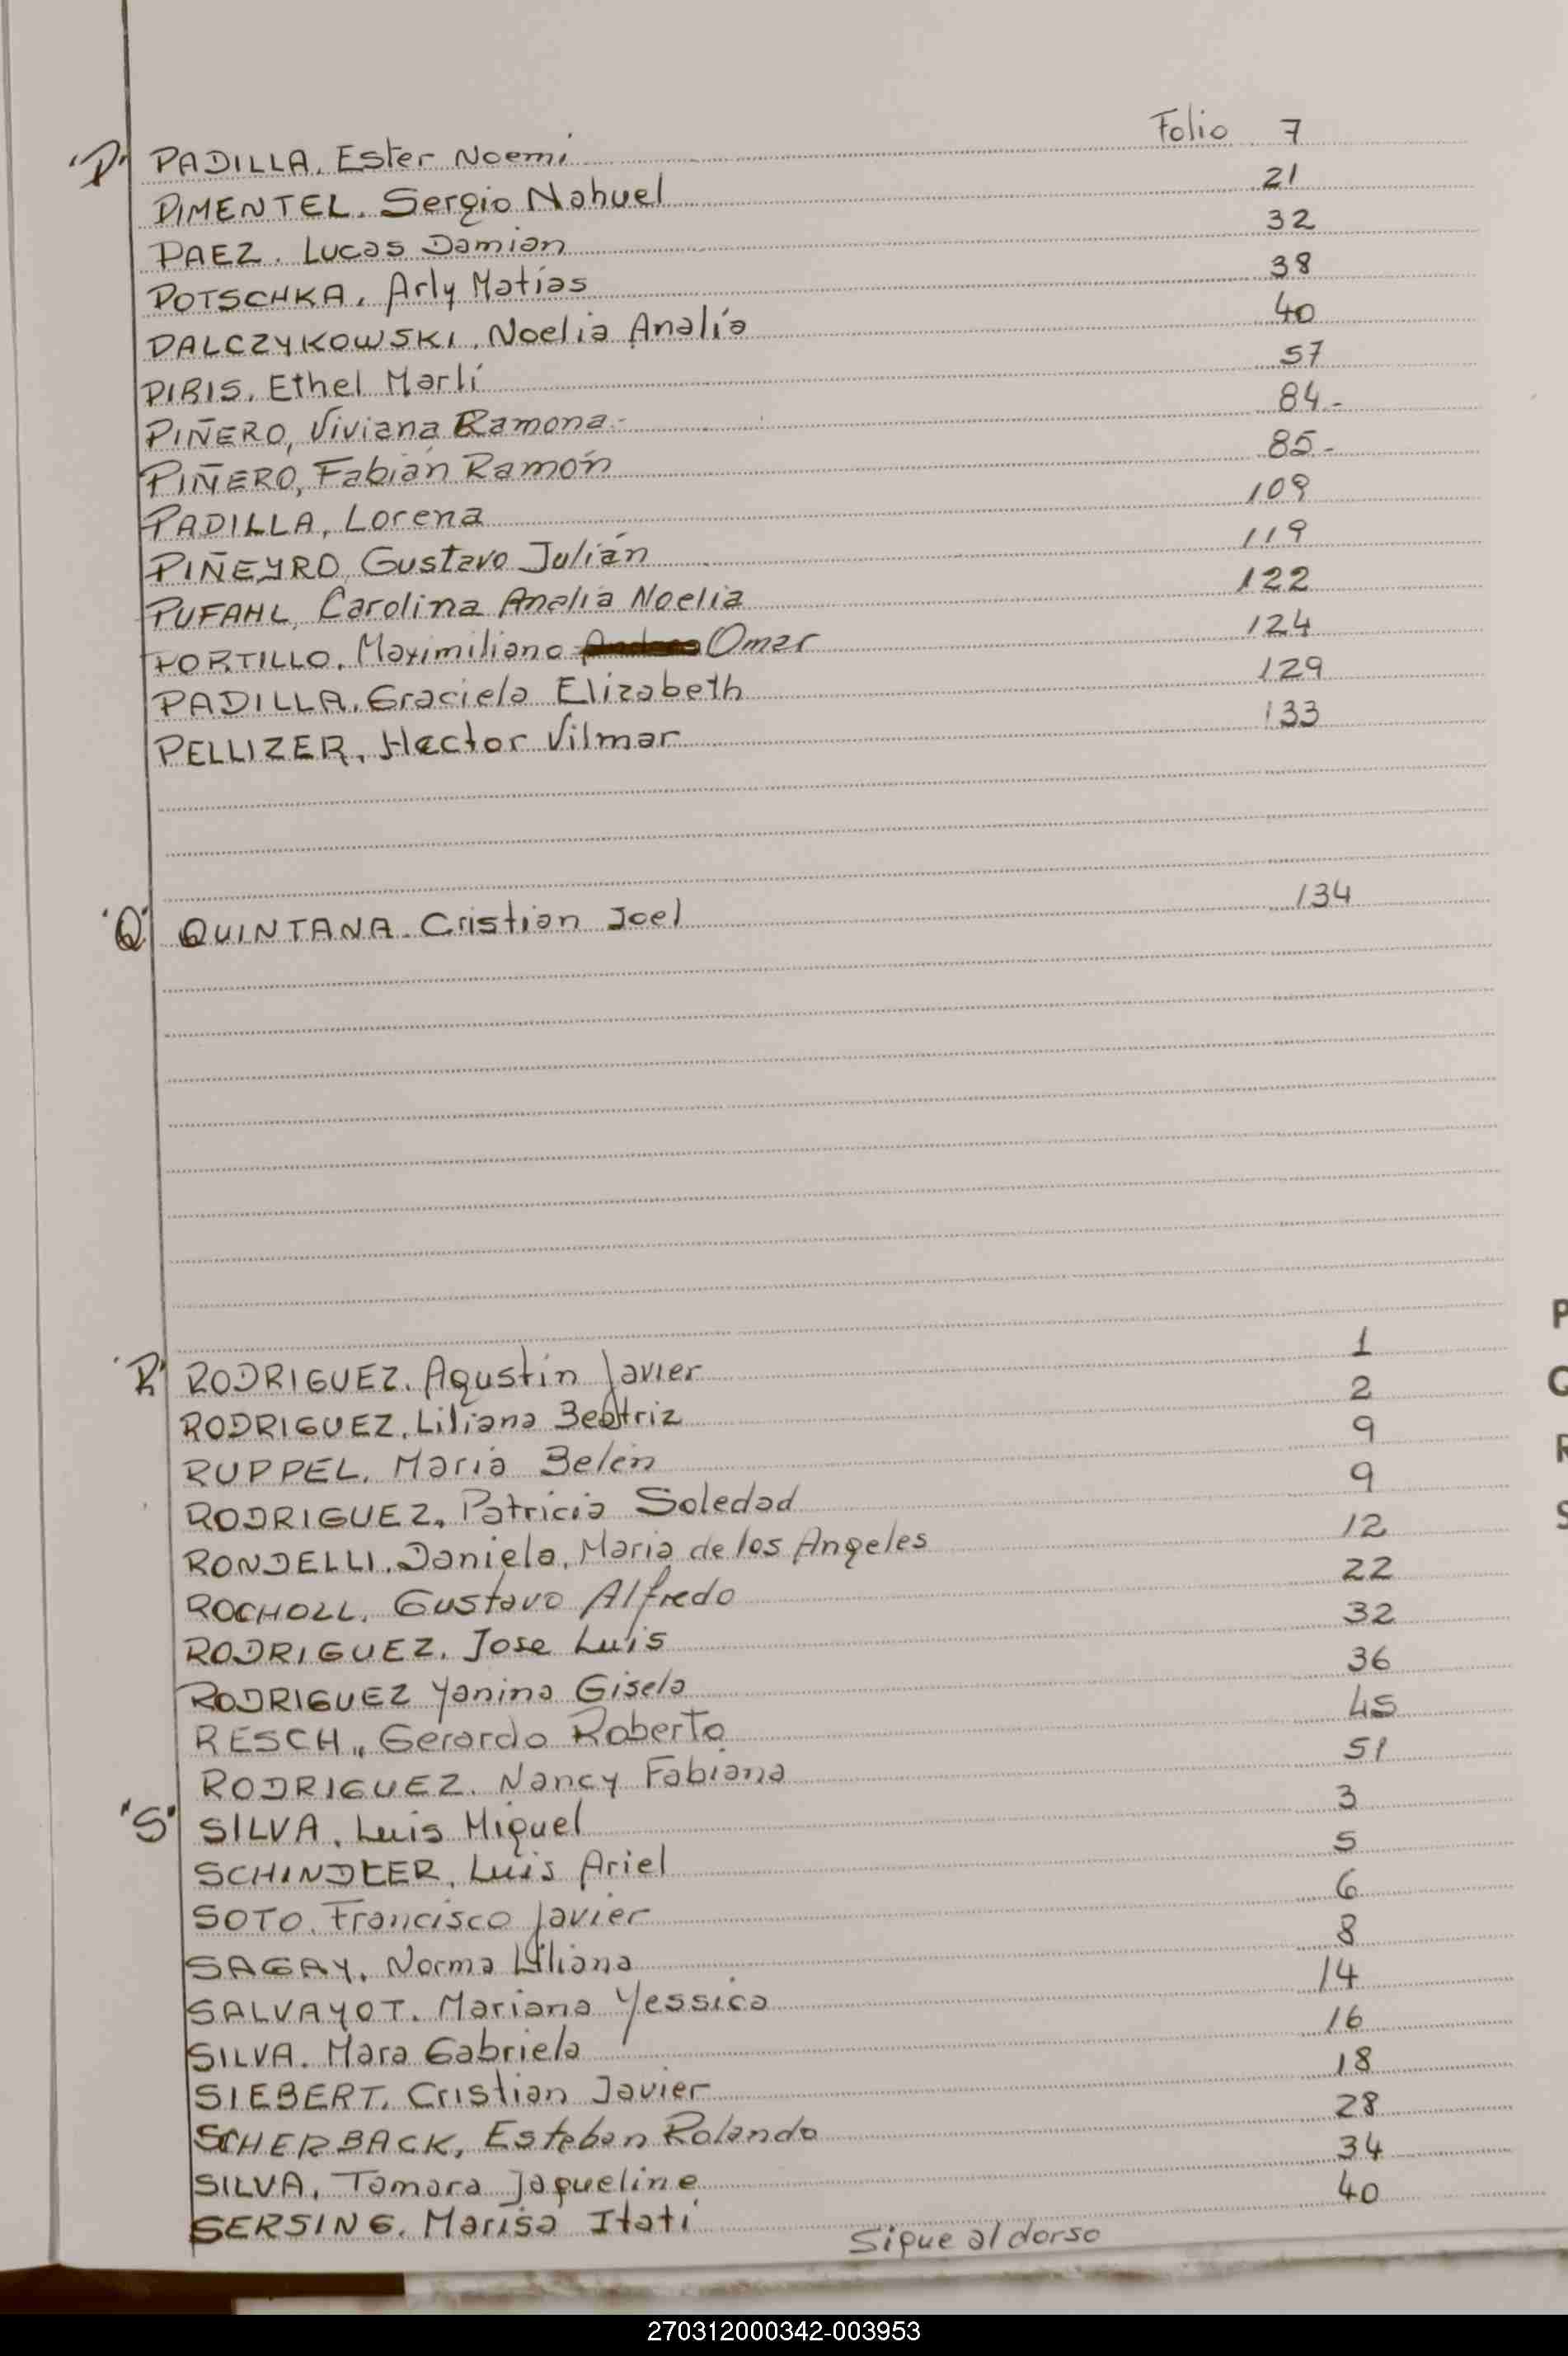 Folio 7
"P" PADILLA, Ester Noemi
PIMENTEL, Sergio Nahuel 21
PAEZ, Lucas Damian 32
POTSCHKA, Arly Matías 38
PALCZYKOWSKI, Noelia Analía 40
PIRIS, Ethel Marlí 57
PIÑERO, Viviana Ramona.- 84.-
PIÑERO, Fabián Ramón 85.-
PADILLA, Lorena 109
PIÑEYRO, Gustavo Julián 119
PUFAHL, Carolina Analia Noelia 122
PORTILLO, Maximiliano Omar 124
PADILLA, Graciela Elizabeth 129
PELLIZER, Hector Vilmar 133
"Q" QUINTANA. Cristian Joel 134
"R" RODRIGUEZ, Agustín Javier 1
RODRIGUEZ, Liliana Beatriz 2
RUPPEL, Maria Belén 9
RODRIGUEZ, Patricia Soledad 9
RONDELLI, Daniela, Maria de los Angeles 12
ROCHOLL, Gustavo Alfredo 22
RODRIGUEZ, Jose Luis 32
RODRIGUEZ Yanina Gisela 36
RESCH, Gerardo Roberto 45
RODRIGUEZ. Nancy Fabiana 51
"S" SILVA, Luis Miguel 3
SCHINDLER, Luis Ariel 5
SOTO, Francisco Javier 6
SAGAY, Norma Liliana 8
SALVAYOT. Mariana Yessica 14
SILVA. Mara Gabriela 16
SIEBERT, Cristian Javier 18
SCHERBACK, Esteban Rolando 28
SILVA, Tamara Jaqueline 34
SERSING, Marisa Itatí 40
Sigue al dorso
P
Q
R
S
270312000342-003953